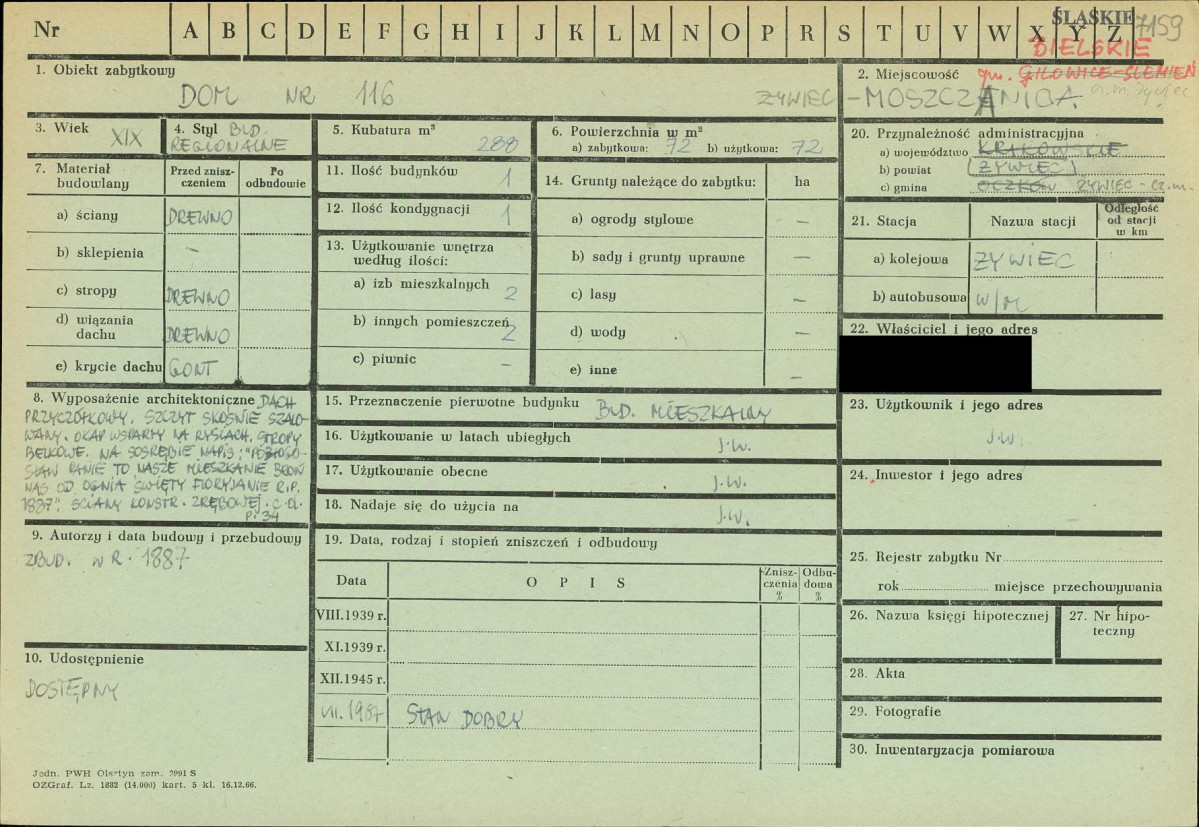 Nr A B C D E F G H I J K L M N O P R S T U V W X Y Z
ŚLĄSKIE 7159
BIELSKIE
1. Obiekt zabytkowy
DOM NR 116
2. Miejscowość gm. GILOWICE-ŚLEMIEŃ
ŻYWIEC - MOSZCZANICA
3. Wiek XIX
4. Styl BUD.
REGIONALNE
5. Kubatura m³
288
6. Powierzchnia w m²
a) zabytkowa: 72 b) użytkowa: 72
7. Materiał budowlany
Przed zniszczeniem
Po odbudowie
a) ściany DREWNO
b) sklepienia –
c) stropy DREWNO
d) wiązania dachu DREWNO
e) krycie dachu GONT
8. Wyposażenie architektoniczne DACH
PRZYCZÓŁKOWY, SZCZYT SKOŚNIE SZALO-
WANY. OKAP WSPARTY NA RYSIACH, STROPY
BELKOWE. NA SOSRĘBIE NAPIS: "POBŁOGO-
SŁAW PANIE TO NASZE MIESZKANIE BROŃ
NAS OD OGNIA ŚWIĘTY FLORYJANIE R.P.
1887", ŚCIANY KONSTR. ZRĘBOWEJ. C.D.
P. 34
9. Autorzy i data budowy i przebudowy
ZBUD. W R. 1887
10. Udostępnienie
DOSTĘPNY
11. Ilość budynków 1
12. Ilość kondygnacji 1
13. Użytkowanie wnętrza
według ilości:
a) izb mieszkalnych 2
b) innych pomieszczeń 2
c) piwnic –
14. Grunty należące do zabytku: ha
a) ogrody stylowe –
b) sady i grunty uprawne –
c) lasy –
d) wody –
e) inne –
15. Przeznaczenie pierwotne budynku BUD. MIESZKALNY
16. Użytkowanie w latach ubiegłych J.W.
17. Użytkowanie obecne J.W.
18. Nadaje się do użycia na J.W.
19. Data, rodzaj i stopień zniszczeń i odbudowy
Data OPIS Zniszczenia % Odbudowa %
VIII.1939 r.
XI.1939 r.
XII.1945 r.
VII.1987 STAN DOBRY
20. Przynależność administracyjna
a) województwo KRAKOWSKIE
b) powiat ŻYWIEC
c) gmina OCZKÓW ŻYWIEC - CZ.M.
21. Stacja Nazwa stacji Odległość od stacji w km
a) kolejowa ŻYWIEC
b) autobusowa W/M
22. Właściciel i jego adres
23. Użytkownik i jego adres
J.W.
24. Inwestor i jego adres
25. Rejestr zabytku Nr
rok miejsce przechowywania
26. Nazwa księgi hipotecznej
27. Nr hipoteczny
28. Akta
29. Fotografie
30. Inwentaryzacja pomiarowa
Jedn. PWH Olsztyn zam. 2991 S
OZGraf. Lz. 1882 (14.000) kart. 5 kl. 16.12.66.